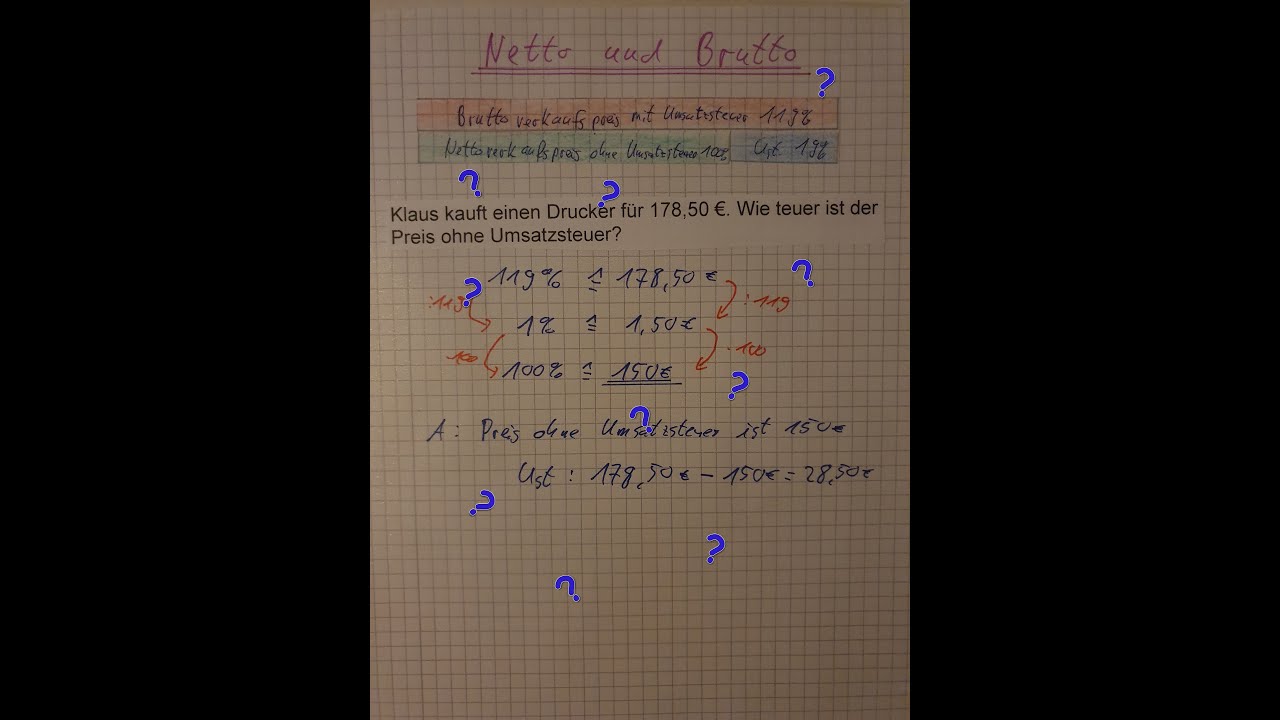 Netto und Brutto
?
Bruttoverkaufspreis mit Umsatzsteuer 119%
Nettoverkaufspreis ohne Umsatzsteuer 100% Ust. 19%
? ?
Klaus kauft einen Drucker für 178,50 €. Wie teuer ist der
Preis ohne Umsatzsteuer?
? 119% ≙ 178,50 € ?
:119 :119
1% ≙ 1,50€
·100 ·100
100% ≙ 150€
? ?
A: Preis ohne Umsatzsteuer ist 150€
Ust : 178,50€ - 150€ = 28,50€
?
?
?